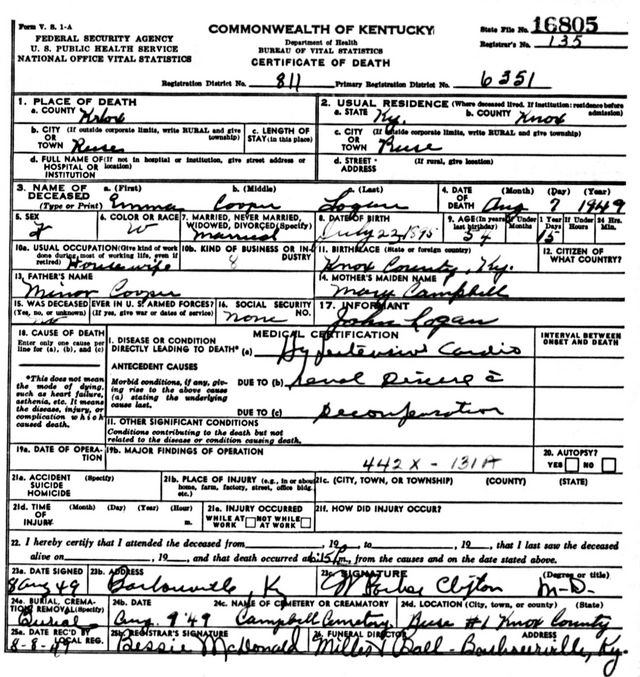 Form V. S. 1-A
FEDERAL SECURITY AGENCY
U. S. PUBLIC HEALTH SERVICE
NATIONAL OFFICE VITAL STATISTICS
COMMONWEALTH OF KENTUCKY
Department of Health
BUREAU OF VITAL STATISTICS
CERTIFICATE OF DEATH
State File No. 16805
Registrar's No. 135
Registration District No. 811 Primary Registration District No. 6351
1. PLACE OF DEATH
a. COUNTY Knox
b. CITY (If outside corporate limits, write RURAL and give OR township)
TOWN Ruse
c. LENGTH OF STAY (in this place)
d. FULL NAME OF (If not in hospital or institution, give street address or HOSPITAL OR location) INSTITUTION
2. USUAL RESIDENCE (Where deceased lived. If institution: residence before admission)
a. STATE Ky. b. COUNTY Knox
c. CITY (If outside corporate limits, write RURAL and give township)
OR TOWN Ruse
d. STREET (If rural, give location)
ADDRESS
3. NAME OF DECEASED (Type or Print) a. (First) b. (Middle) c. (Last)
Emma Cooper Logan
4. DATE OF DEATH (Month) (Day) (Year)
Aug 7 1949
5. SEX
6. COLOR OR RACE W
7. MARRIED, NEVER MARRIED, WIDOWED, DIVORCED (Specify)
Married
8. DATE OF BIRTH
July 22 1895
9. AGE (In years last birthday) 54
If Under 1 Year Days 15
If Under 24 Hrs. Hours Min.
10a. USUAL OCCUPATION (Give kind of work done during most of working life, even if retired)
Housewife
10b. KIND OF BUSINESS OR INDUSTRY
11. BIRTHPLACE (State or foreign country)
Knox County, Ky.
12. CITIZEN OF WHAT COUNTRY?
13. FATHER'S NAME
Minor Cooper
14. MOTHER'S MAIDEN NAME
Mary Campbell
15. WAS DECEASED EVER IN U. S. ARMED FORCES?
(Yes, no, or unknown) (If yes, give war or dates of service)
16. SOCIAL SECURITY NO.
none
17. INFORMANT
John Logan
18. CAUSE OF DEATH
Enter only one cause per line for (a), (b), and (c)
*This does not mean the mode of dying, such as heart failure, asthenia, etc. It means the disease, injury, or complication which caused death.
MEDICAL CERTIFICATION
INTERVAL BETWEEN ONSET AND DEATH
I. DISEASE OR CONDITION DIRECTLY LEADING TO DEATH* (a) Hypertensive Cardio
ANTECEDENT CAUSES
Morbid conditions, if any, giving rise to the above cause (a) stating the underlying cause last.
DUE TO (b) renal Disease c̄
DUE TO (c) Decompensation
II. OTHER SIGNIFICANT CONDITIONS
Conditions contributing to the death but not related to the disease or condition causing death.
19a. DATE OF OPERATION
19b. MAJOR FINDINGS OF OPERATION
442X - 131A
20. AUTOPSY?
YES NO
21a. ACCIDENT (Specify) SUICIDE HOMICIDE
21b. PLACE OF INJURY (e.g., in or about home, farm, factory, street, office bldg. etc.)
21c. (CITY, TOWN, OR TOWNSHIP) (COUNTY) (STATE)
21d. TIME OF INJURY (Month) (Day) (Year) (Hour) m.
21e. INJURY OCCURRED
WHILE AT WORK NOT WHILE AT WORK
21f. HOW DID INJURY OCCUR?
22. I hereby certify that I attended the deceased from , 19 , to , 19 , that I last saw the deceased
alive on , 19 , and that death occurred at 6:15 P m., from the causes and on the date stated above.
23a. DATE SIGNED
8 Aug 49
23b. ADDRESS
Barbourville, Ky
23c. SIGNATURE (Degree or title)
Clifton M-D.
24a. BURIAL, CREMATION, REMOVAL (Specify)
Burial
24b. DATE
Aug. 9 '49
24c. NAME OF CEMETERY OR CREMATORY
Campbell Cemetery
24d. LOCATION (City, town, or county) (State)
Ruse #1 Knox County
25a. DATE REC'D BY LOCAL REG.
8-8-49
25b. REGISTRAR'S SIGNATURE
Bessie McDonald
26. FUNERAL DIRECTOR ADDRESS
Miller & Ball - Barbourville, Ky.